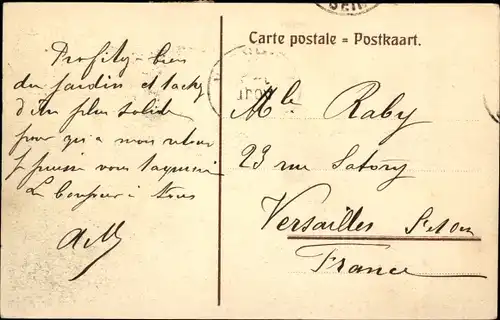 Carte postale = Postkaart.
Profitez bien
du jardin et tachez
d'être plus solide
pour qu'à mon retour
je puisse vous taquiner
Le bonjour à tous
Mlle Raby
23 rue Satory
Versailles
France